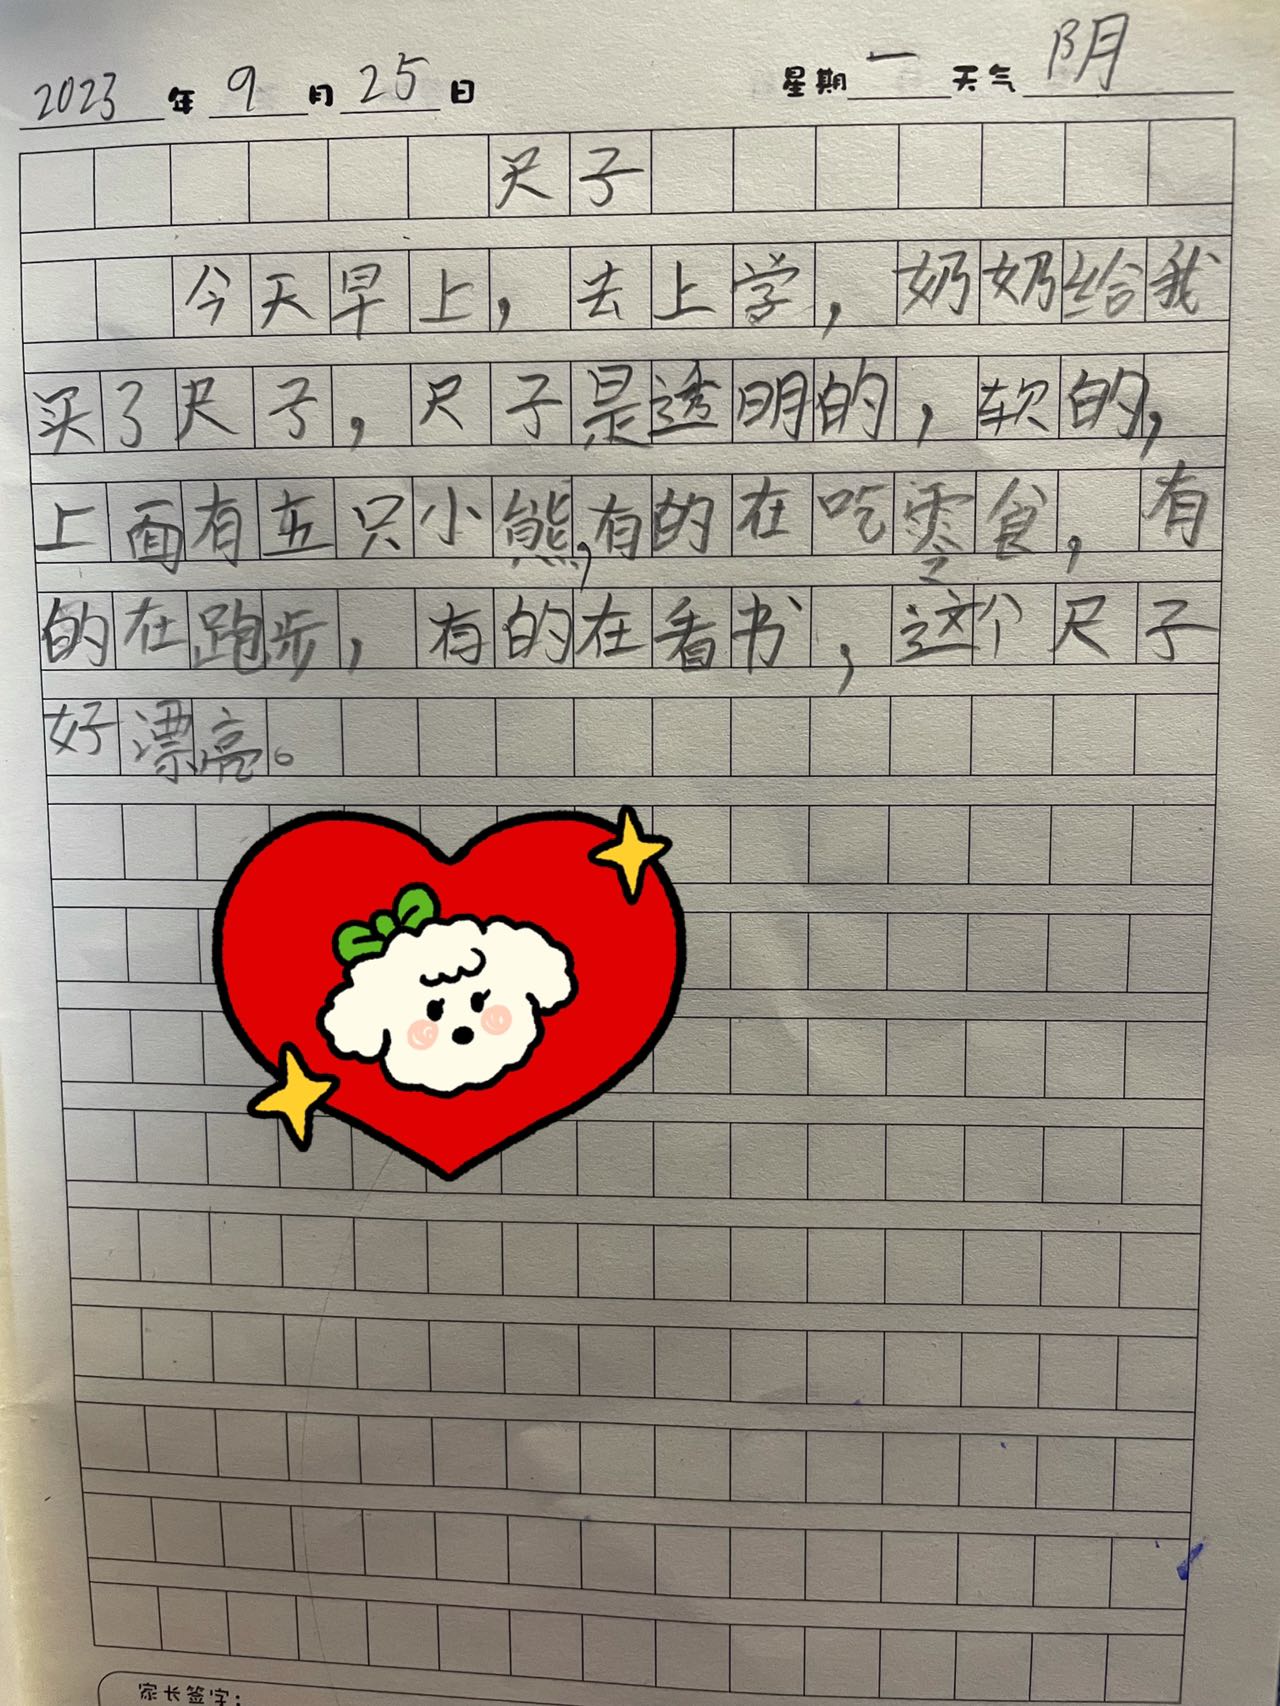 2023年9月25日 星期一 天气阴
尺子
今天早上，去上学，奶奶给我
买了尺子，尺子是透明的，软的，
上面有五只小熊，有的在吃零食，有
的在跑步，有的在看书，这个尺子
好漂亮。
家长签字：